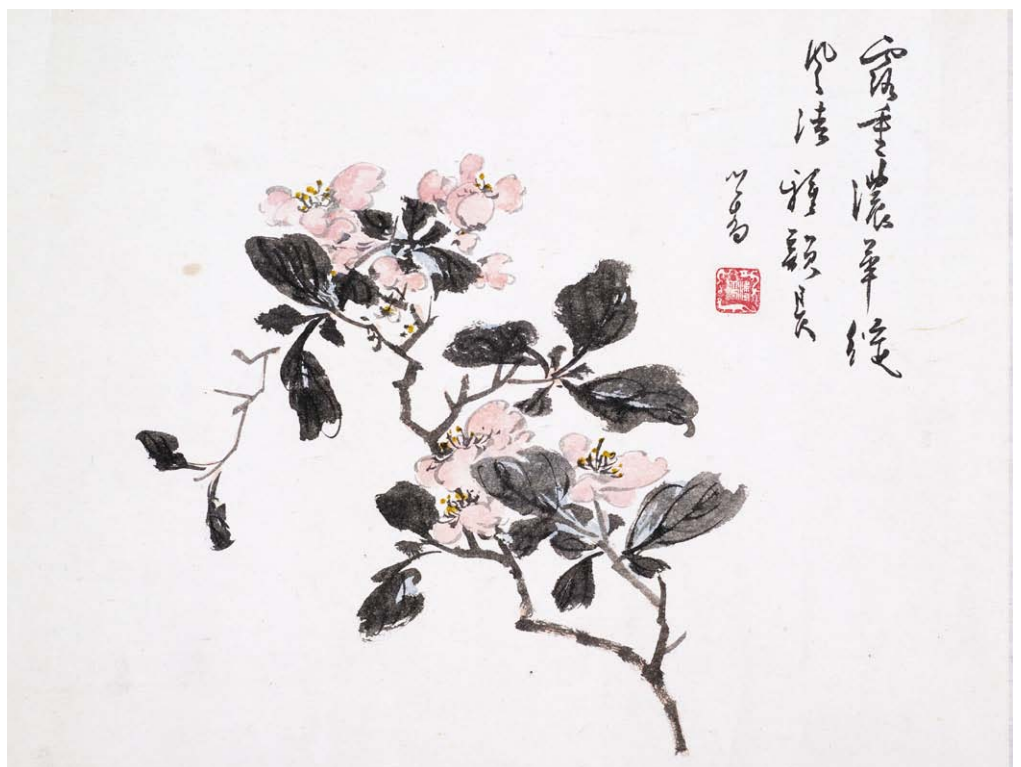 露重濃華綻
風清雅韻長
心畬